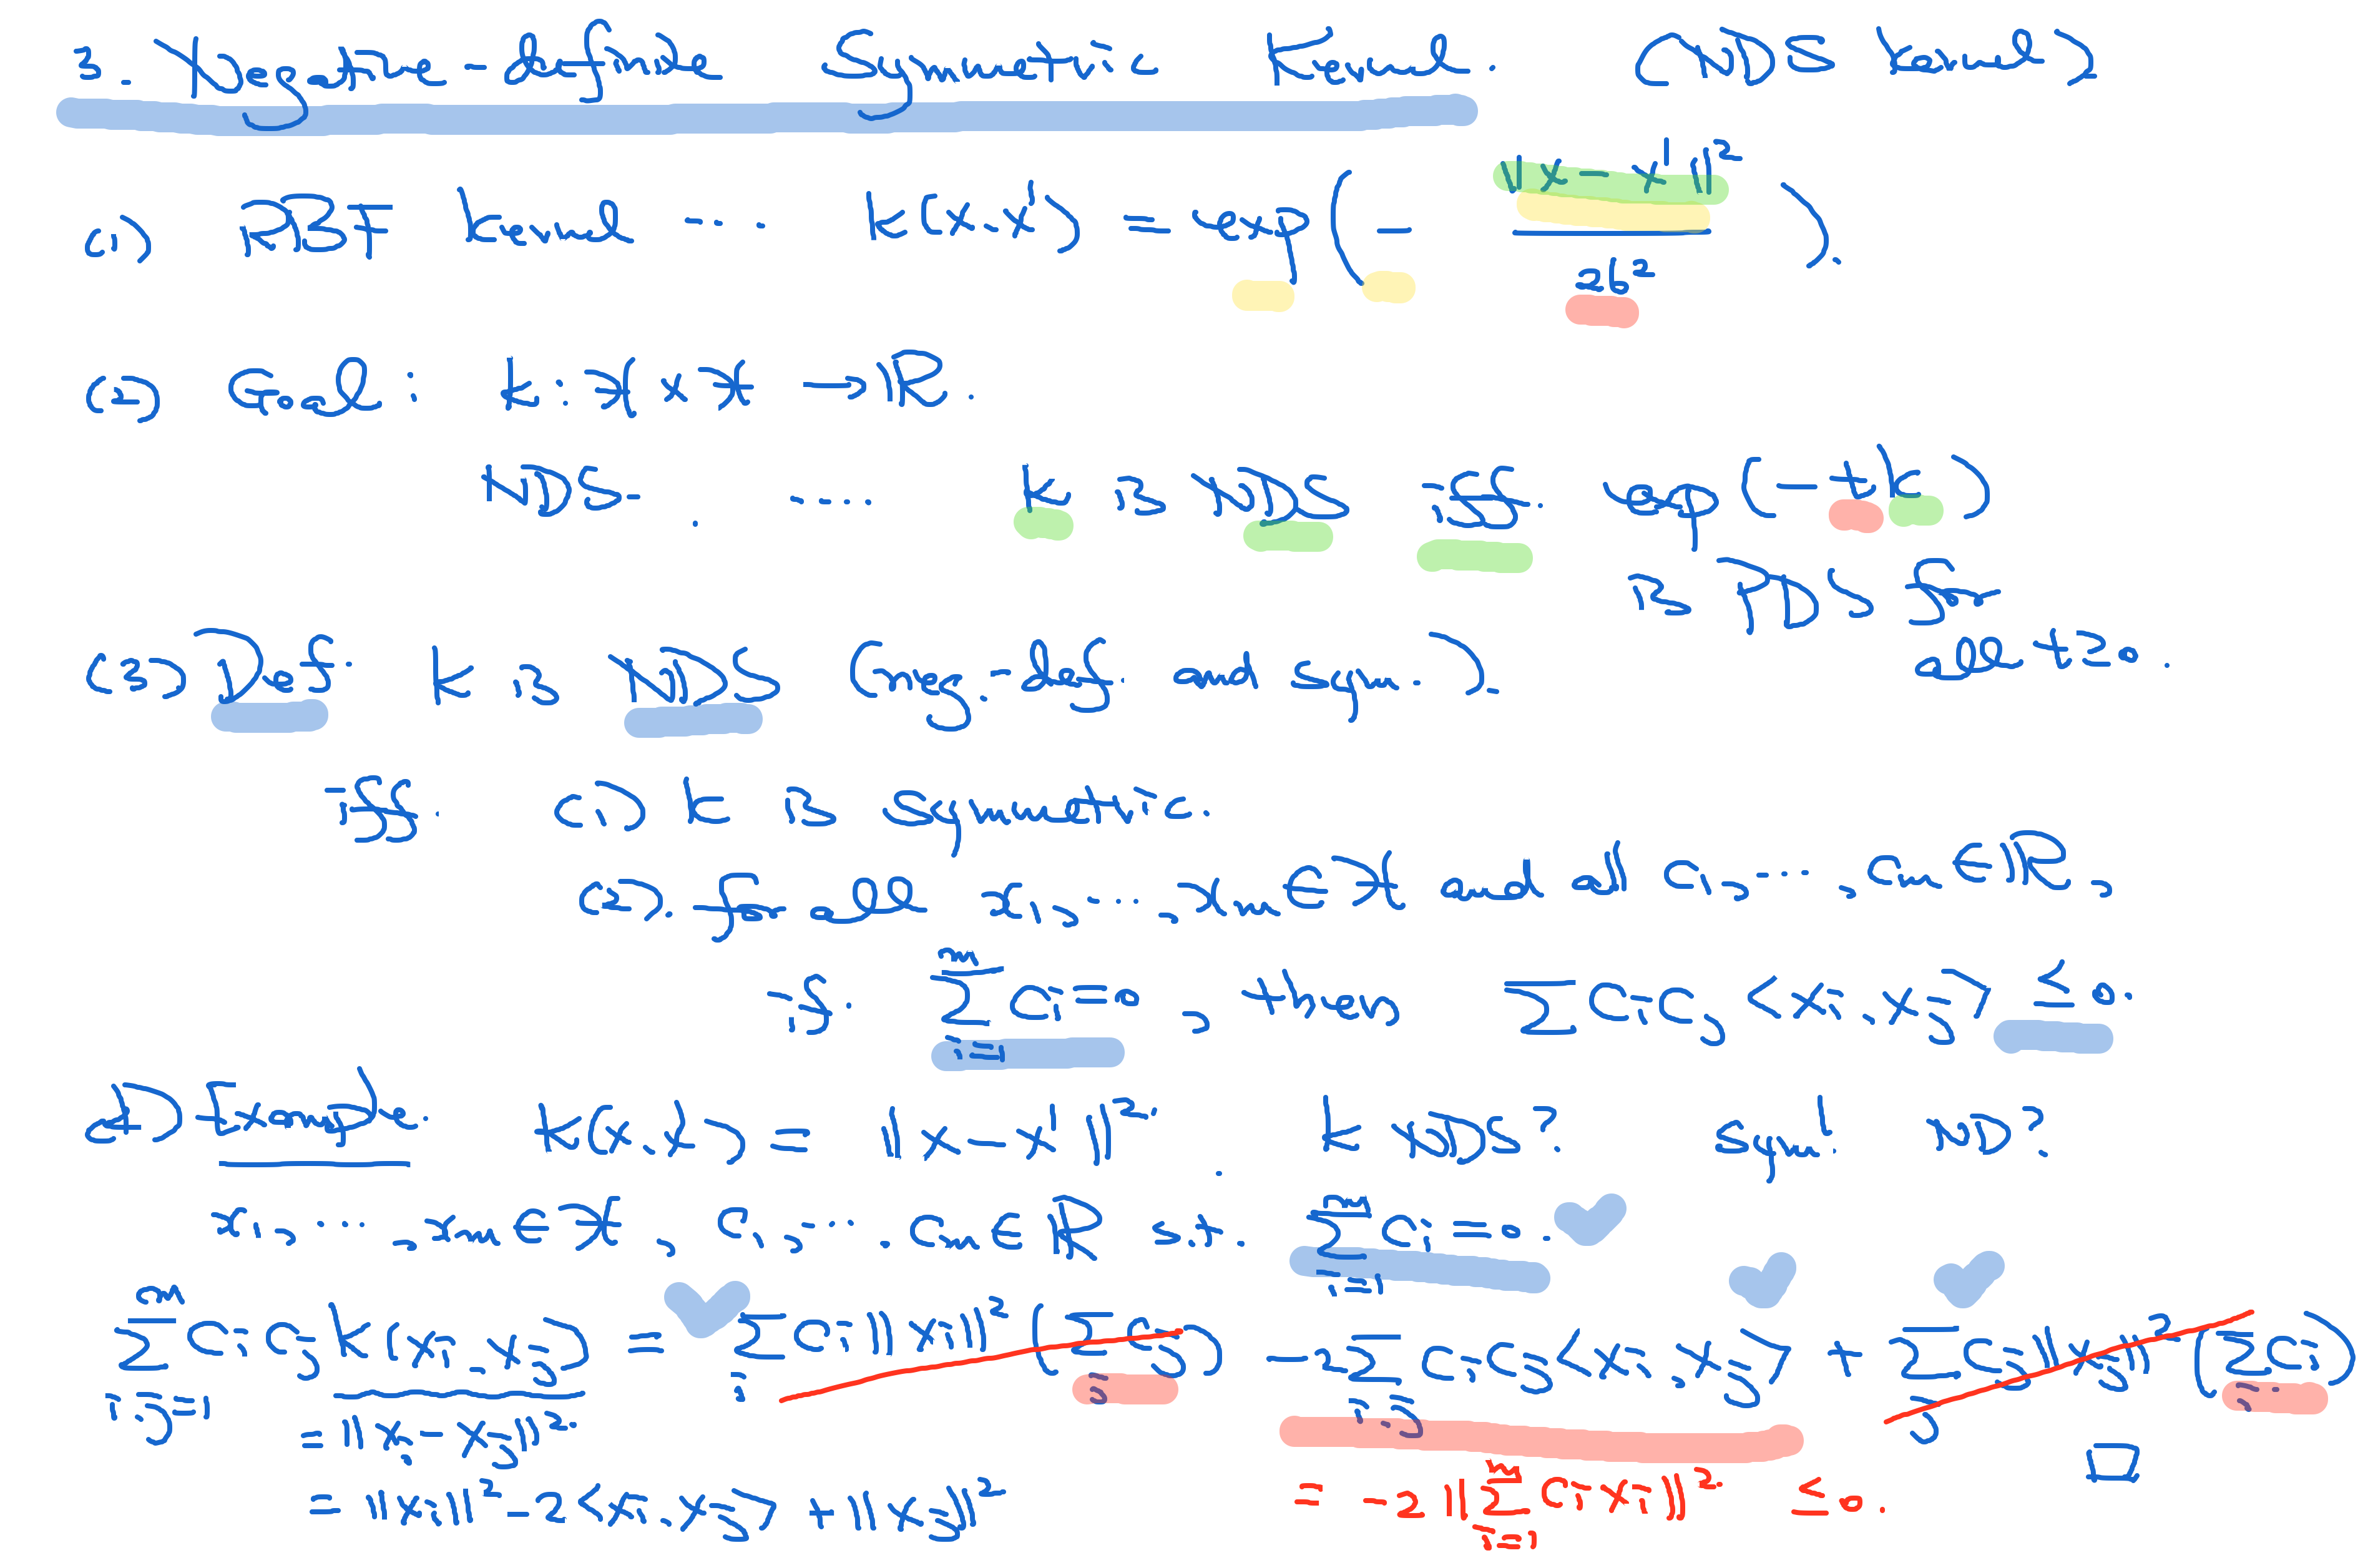 3. Negative-definite Symmetric Kernel. (NDS kernel)
(1) RBF kernel ... K(x,x') = exp(- ||x-x'||² / 2σ²).
(2) Goal: k: X×X → R.
NDS. .... K is NDS iff. exp(-tK)
is PDS for
all t>0.
(3) Def. K is NDS (neg.-def. and sym.).
iff. (1) K is symmetric.
(2). for all x1, ..., xm ∈ X and all c1, ..., cm ∈ R,
if. Σ_{i=1}^m ci = 0, then Σ ci cj <xi, xj> ≤ 0.
4) Example. K(x,x') = ||x-x'||². K NDS? sym! ND?
x1, ..., xm ∈ X, c1, ... cm ∈ R s.t. Σ_{i=1}^m ci = 0.
Σ_{i,j=1}^m ci cj K(xi, xj) = Σ_i ci ||xi||² (Σ_j cj) - 2 Σ_{i,j} ci cj <xi, xj> + Σ_j cj ||xj||² (Σ_i ci)
= ||xi - xj||².
= ||xi||² - 2<xi, xj> + ||xj||²
= -2 ||Σ_{i=1}^m ci xi||² ≤ 0. □